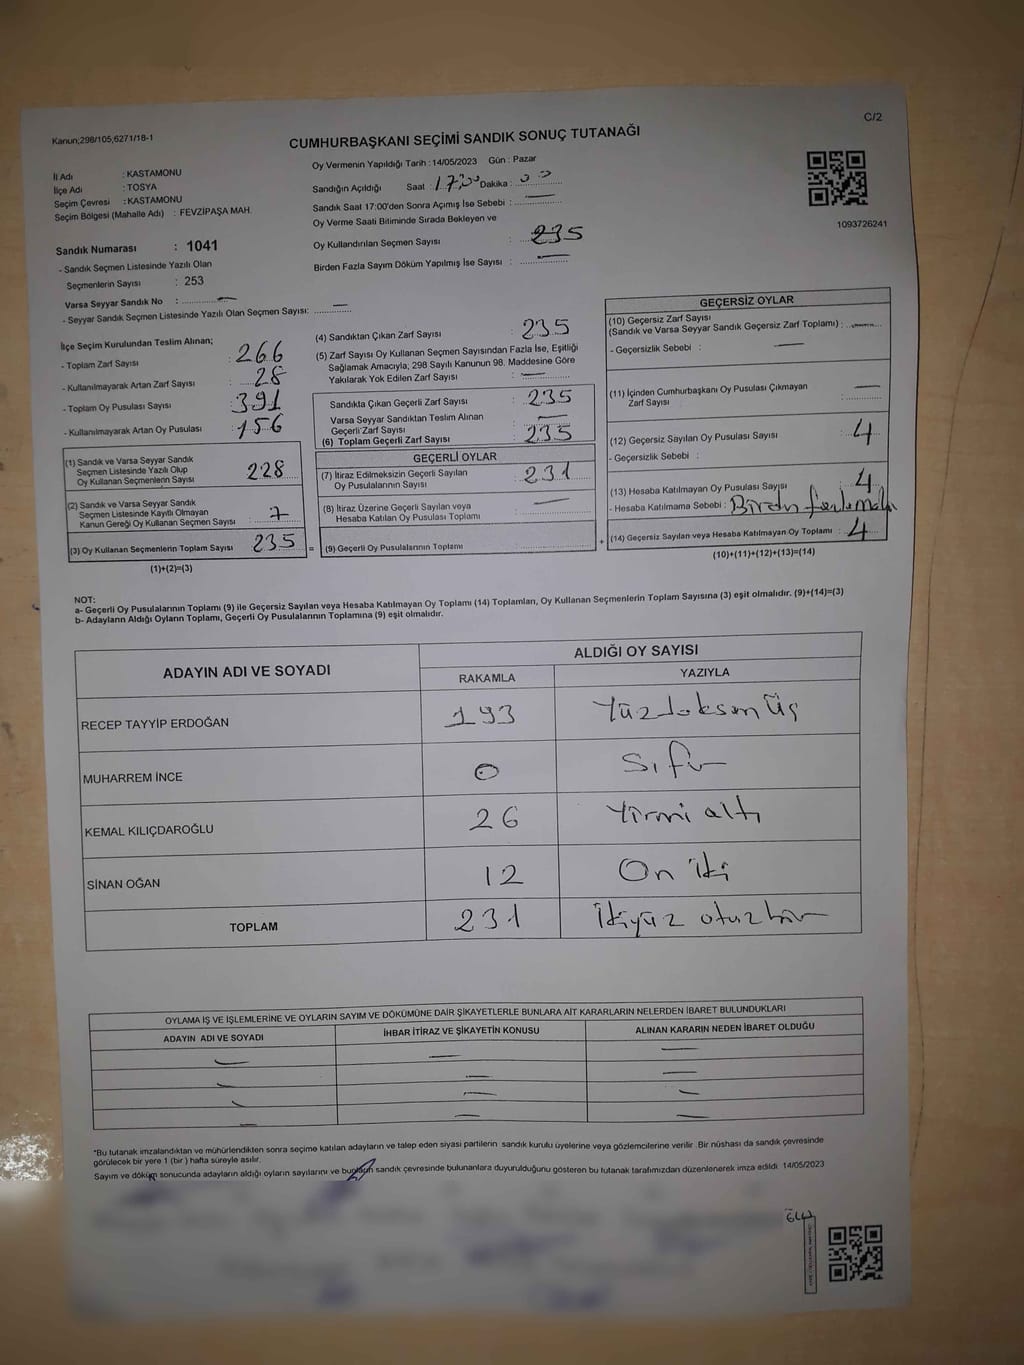 C/2
Kanun;298/105,6271/18-1
CUMHURBAŞKANI SEÇİMİ SANDIK SONUÇ TUTANAĞI
İl Adı : KASTAMONU
İlçe Adı : TOSYA
Seçim Çevresi : KASTAMONU
Seçim Bölgesi (Mahalle Adı) : FEVZİPAŞA MAH.
Sandık Numarası : 1041
- Sandık Seçmen Listesinde Yazılı Olan
Seçmenlerin Sayısı : 253
Varsa Seyyar Sandık No :
- Seyyar Sandık Seçmen Listesinde Yazılı Olan Seçmen Sayısı:
Oy Vermenin Yapıldığı Tarih : 14/05/2023 Gün : Pazar
Sandığın Açıldığı Saat : 17:00 Dakika : 00
Sandık Saat 17:00'den Sonra Açılmış İse Sebebi :
Oy Verme Saati Bitiminde Sırada Bekleyen ve
Oy Kullandırılan Seçmen Sayısı : 235
Birden Fazla Sayım Döküm Yapılmış İse Sayısı :
1093726241
İlçe Seçim Kurulundan Teslim Alınan;
- Toplam Zarf Sayısı : 266
- Kullanılmayarak Artan Zarf Sayısı : 28
- Toplam Oy Pusulası Sayısı : 391
- Kullanılmayarak Artan Oy Pusulası : 156
(1) Sandık ve Varsa Seyyar Sandık
Seçmen Listesinde Yazılı Olup
Oy Kullanan Seçmenlerin Sayısı 228
(2) Sandık ve Varsa Seyyar Sandık
Seçmen Listesinde Kayıtlı Olmayan
Kanun Gereği Oy Kullanan Seçmen Sayısı : 7
(3) Oy Kullanan Seçmenlerin Toplam Sayısı 235
(1)+(2)=(3)
(4) Sandıktan Çıkan Zarf Sayısı : 235
(5) Zarf Sayısı Oy Kullanan Seçmen Sayısından Fazla İse, Eşitliği
Sağlamak Amacıyla; 298 Sayılı Kanunun 98. Maddesine Göre
Yakılarak Yok Edilen Zarf Sayısı :
Sandıkta Çıkan Geçerli Zarf Sayısı : 235
Varsa Seyyar Sandıktan Teslim Alınan
Geçerli Zarf Sayısı :
(6) Toplam Geçerli Zarf Sayısı : 235
GEÇERLİ OYLAR
(7) İtiraz Edilmeksizin Geçerli Sayılan
Oy Pusulalarının Sayısı : 231
(8) İtiraz Üzerine Geçerli Sayılan veya
Hesaba Katılan Oy Pusulası Toplamı :
= (9) Geçerli Oy Pusulalarının Toplamı : +
GEÇERSİZ OYLAR
(10) Geçersiz Zarf Sayısı
(Sandık ve Varsa Seyyar Sandık Geçersiz Zarf Toplamı) :
- Geçersizlik Sebebi :
(11) İçinden Cumhurbaşkanı Oy Pusulası Çıkmayan
Zarf Sayısı :
(12) Geçersiz Sayılan Oy Pusulası Sayısı : 4
- Geçersizlik Sebebi :
(13) Hesaba Katılmayan Oy Pusulası Sayısı : 4
- Hesaba Katılmama Sebebi : Birden
(14) Geçersiz Sayılan veya Hesaba Katılmayan Oy Toplamı : 4
(10)+(11)+(12)+(13)=(14)
NOT:
a- Geçerli Oy Pusulalarının Toplamı (9) ile Geçersiz Sayılan veya Hesaba Katılmayan Oy Toplamı (14) Toplamları, Oy Kullanan Seçmenlerin Toplam Sayısına (3) eşit olmalıdır. (9)+(14)=(3)
b- Adayların Aldığı Oyların Toplamı, Geçerli Oy Pusulalarının Toplamına (9) eşit olmalıdır.
ADAYIN ADI VE SOYADI ALDIĞI OY SAYISI
RAKAMLA YAZIYLA
RECEP TAYYİP ERDOĞAN 193 Yüzdoksan Üç
MUHARREM İNCE 0 Sıfır
KEMAL KILIÇDAROĞLU 26 Yirmi altı
SİNAN OĞAN 12 On iki
TOPLAM 231 İkiyüz otuzbir
OYLAMA İŞ VE İŞLEMLERİNE VE OYLARIN SAYIM VE DÖKÜMÜNE DAİR ŞİKAYETLERLE BUNLARA AİT KARARLARIN NELERDEN İBARET BULUNDUKLARI
ADAYIN ADI VE SOYADI İHBAR İTİRAZ VE ŞİKAYETİN KONUSU ALINAN KARARIN NEDEN İBARET OLDUĞU
*Bu tutanak imzalandıktan ve mühürlendikten sonra seçime katılan adayların ve talep eden siyasi partilerin sandık kurulu üyelerine veya gözlemcilerine verilir. Bir nüshası da sandık çevresinde
görülecek bir yere 1 (bir) hafta süreyle asılır.
Sayım ve döküm sonucunda adayların aldığı oyların sayılarını ve bunların sandık çevresinde bulunanlara duyurulduğunu gösteren bu tutanak tarafımızdan düzenlenerek imza edildi. 14/05/2023